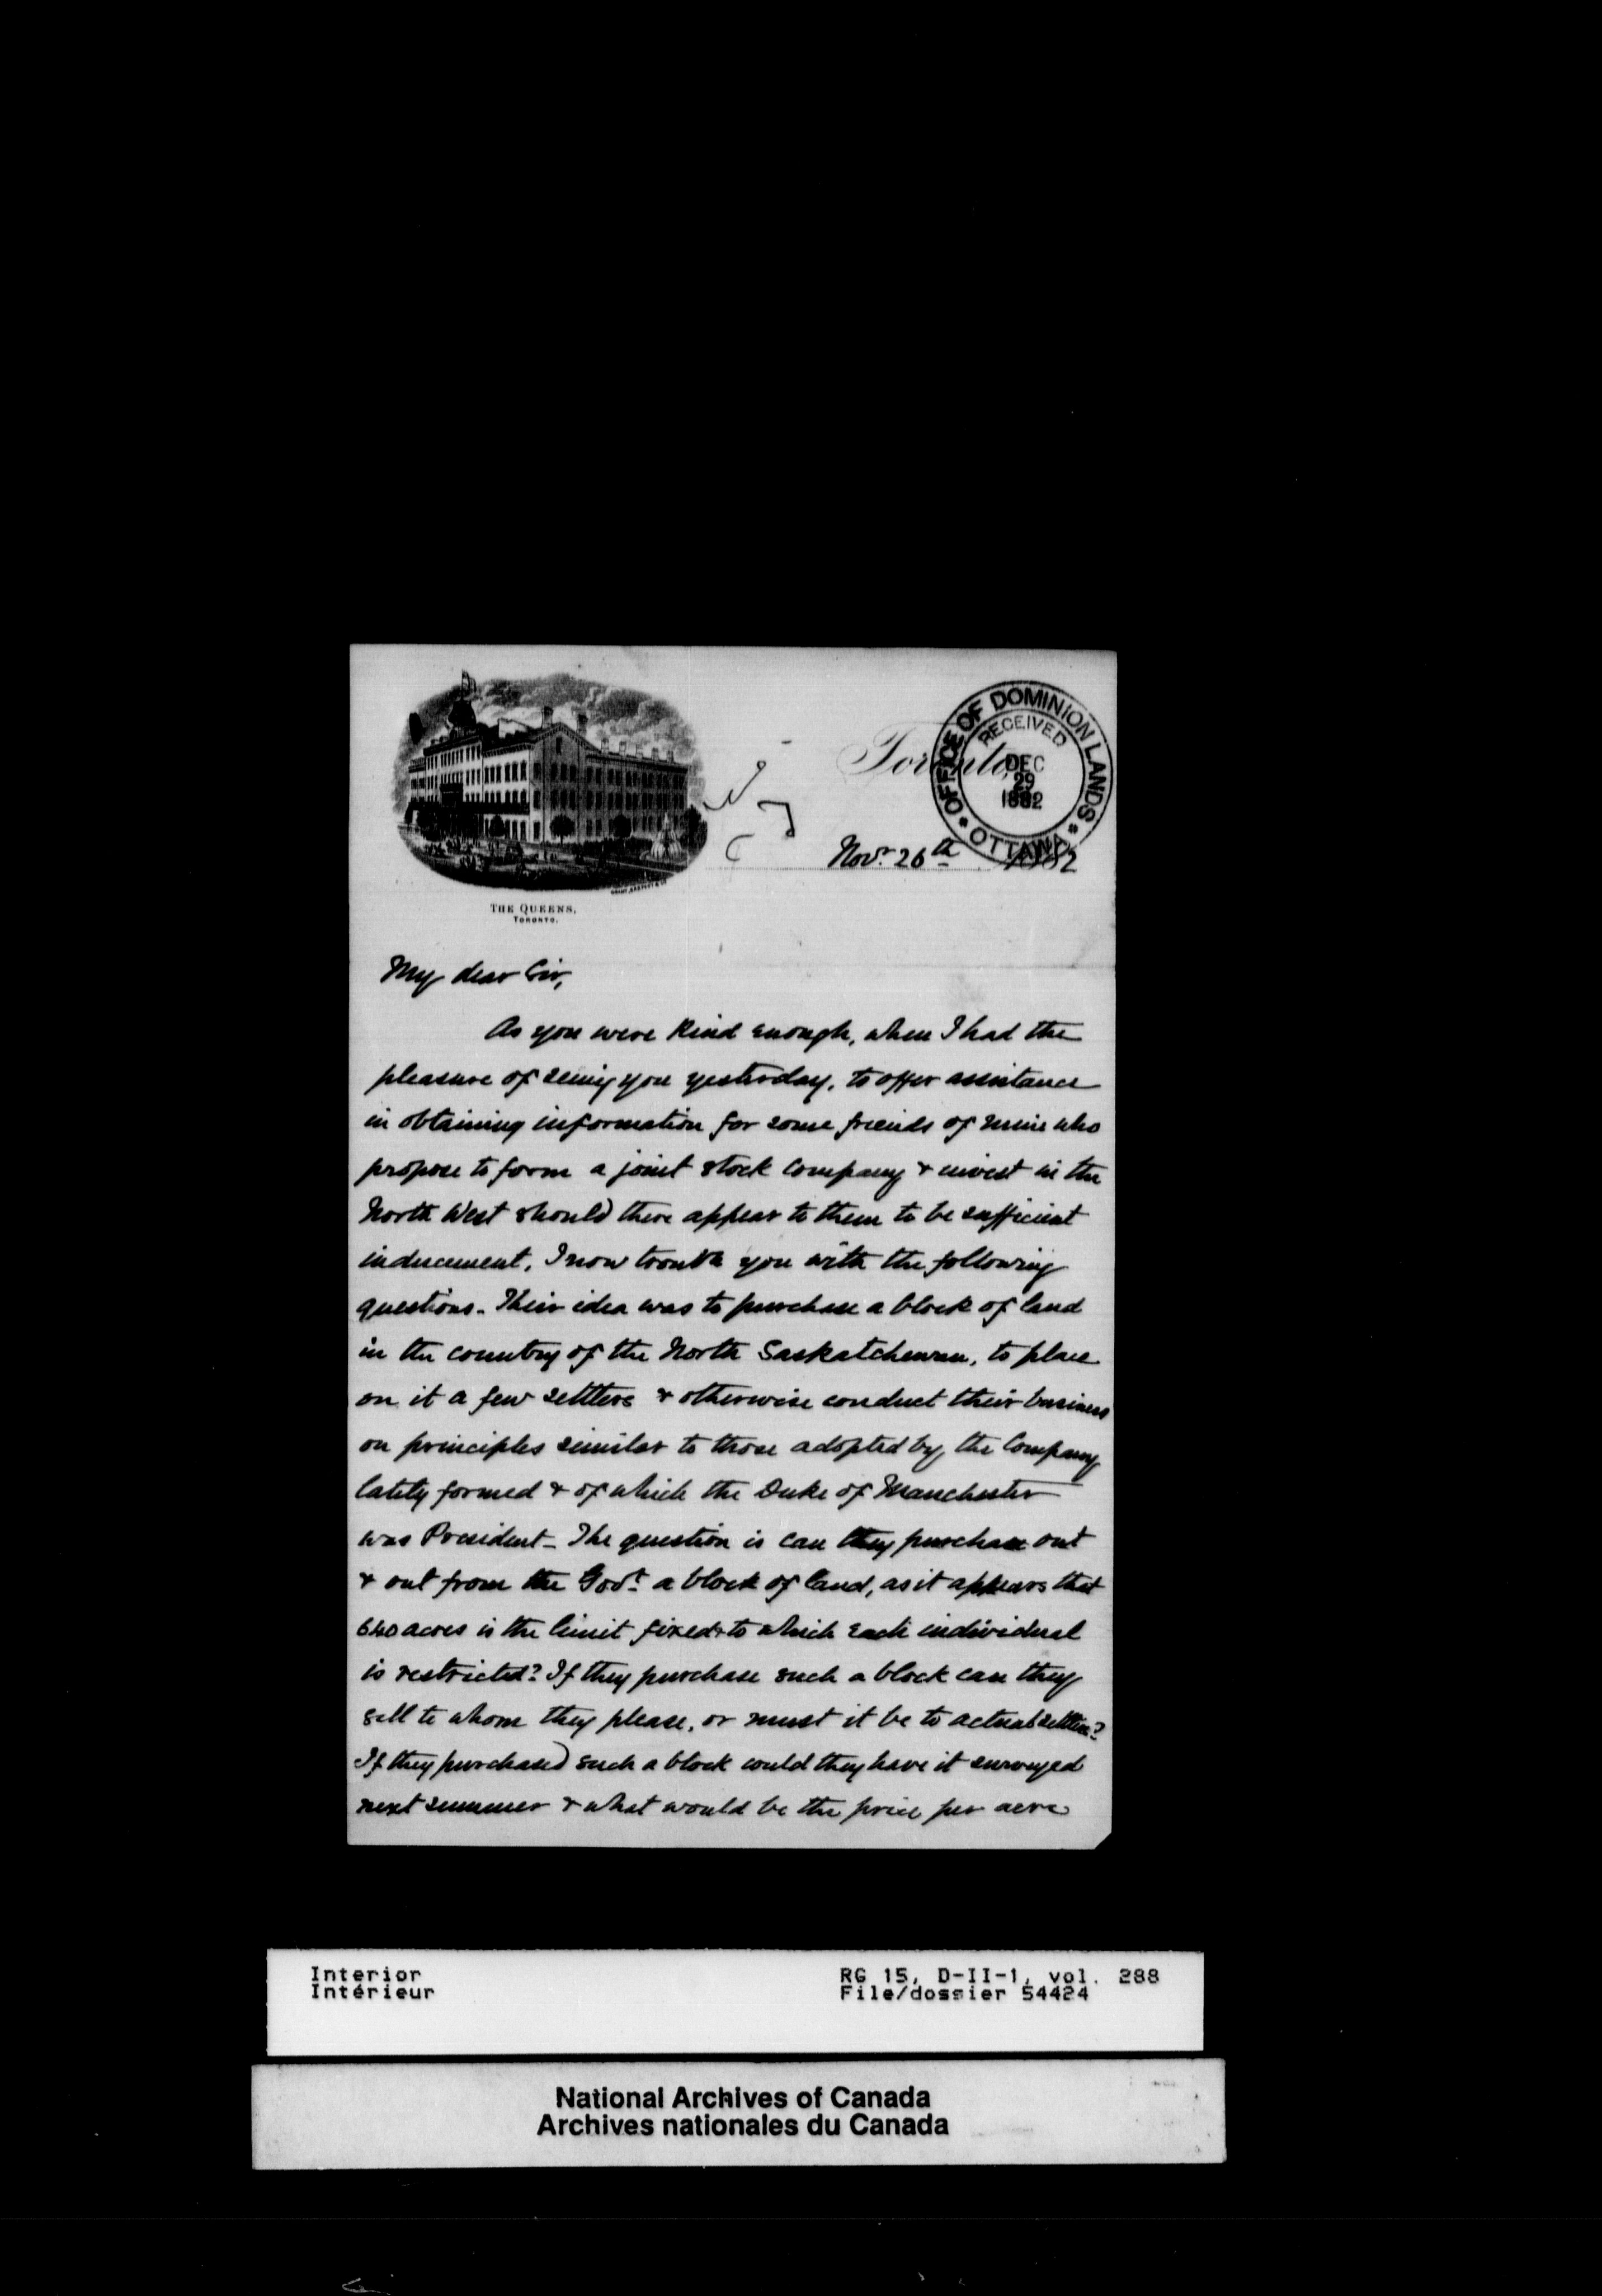 OFFICE OF DOMINION LANDS
RECEIVED
DEC
29
1882
* OTTAWA *
Toronto,
Novr. 26th 1882
THE QUEENS,
TORONTO.
My dear Sir,
As you were kind enough, when I had the
pleasure of seeing you yesterday, to offer assistance
in obtaining information for some friends of mine who
propose to form a joint stock Company & invest in the
North West should there appear to them to be sufficient
inducement, I now trouble you with the following
questions. Their idea was to purchase a block of land
in the country of the North Saskatchewan, to place
on it a few settlers & otherwise conduct their business
on principles similar to those adopted by the Company
lately formed & of which the Duke of Manchester
was President - The question is can they purchase out
& out from the Govt. a block of land, as it appears that
640 acres is the limit fixed & to which each individual
is restricted? If they purchase such a block can they
sell to whom they please, or must it be to actual settlers?
If they purchased such a block could they have it surveyed
next summer & what would be the price per acre
Interior
Intérieur
RG 15, D-II-1, vol. 288
File/dossier 54424
National Archives of Canada
Archives nationales du Canada